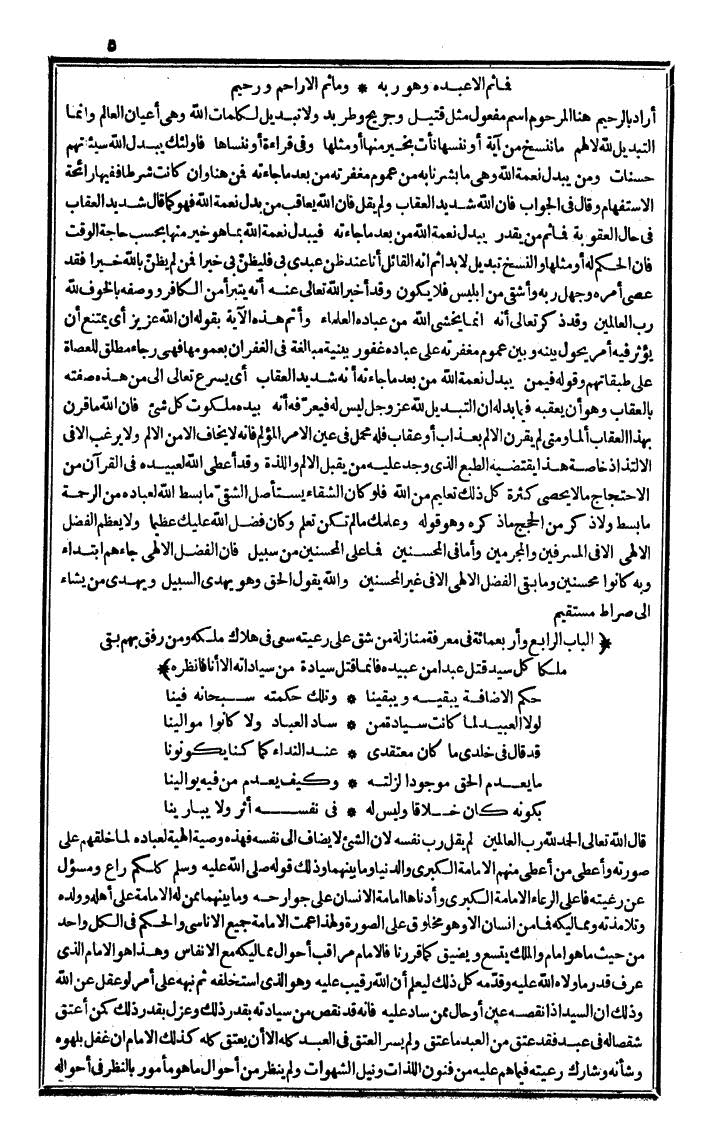 ٥
فاثم الا عبده وهو ربه * وماثم الا راحم ورحيم
أراد بالرحيم هنا المرحوم اسم مفعول مثل قتيل وجريح وطريد ولا تبديل لكلمات الله وهي أعيان العالم وانما
التبديل لله لالهم ما ننسخ من آية أو ننسها نأت بخير منها أو مثلها وفي قراءة أو ننساها فاولئك يبدل الله سيئاتهم
حسنات ومن يبدل نعمة الله وهي ما بشر نابه من عموم مغفرته من بعد ما جاءته فمن هنا وان كانت شرطا ففيها رائحة
الاستفهام وقال في الجواب فان الله شديد العقاب ولم يقل فان الله يعاقب من بدل نعمة الله فهو كما قال شديد العقاب
في حال العقوبة فاثم من يقدر يبدل نعمة الله من بعد ما جاءته فيبدل نعمة الله بما هو خير منها بحسب حاجة الوقت
فان الحكم له أو مثلها والنسخ تبديل لا بدائم انه القائل أنا عند ظن عبدي بي فليظنّ بي خيرا فمن لم يظنّ بالله خيرا فقد
عصى أمره وجهل ربه وأشقى من ابليس فلا يكون وقد أخبر الله تعالى عنه أنه يتبرأ من الكافر ووصفه بالخوف لله
رب العالمين وقد ذكر تعالى أنه انما يخشى الله من عباده العلماء وأتم هذه الآية بقوله ان الله عزيز أي يمتنع أن
يؤثر فيه أمر يحول بينه وبين عموم مغفرته على عباده غفور ببنية مبالغة في الغفران بعمومها فهي رجاء مطلق للعصاة
على طبقاتهم وقوله فيمن يبدل نعمة الله من بعد ما جاءته أنه شديد العقاب أي يسرع تعالى الى من هذه صفته
بالعقاب وهو أن يعقبه فيما بدله ان التبديل لله عز وجل ليس له فيعرّفه أنه بيده ملكوت كل شئ فان الله ما قرن
بهذا العقاب ألما ومتى لم يقرن الالم بعذاب أو عقاب فله محمل في عين الامر المؤلم فانه لا يخاف الا من الالم ولا يرغب الا في
الالتذاذ خاصة هذا يقتضيه الطبع الذي وجد عليه من يقبل الالم واللذة وقد أعطى الله لعبيده في القرآن من
الاحتجاج ما لا يحصى كثرة كل ذلك تعليم من الله فلو كان الشقاء يستأصل الشقيّ ما بسط الله لعباده من الرحمة
ما بسط ولا ذكر من الحجج ما ذكره وهو قوله وعلمك ما لم تكن تعلم وكان فضل الله عليك عظيما ولا يعظم الفضل
الالهي الا في المسرفين والمجرمين وأما في المحسنين فما على المحسنين من سبيل فان الفضل الالهي جاءهم ابتداء
وبه كانوا محسنين وما بقي الفضل الالهي الا في غير المحسنين والله يقول الحق وهو يهدي السبيل ويهدي من يشاء
الى صراط مستقيم
﴿ الباب الرابع وأربعمائة في معرفة منازلة من شق على رعيته سعى في هلاك ملكه ومن رفق بهم بقي
ملكا كل سيد قتل عبدا من عبيده فانما قتل سيادة من سياداته الا أنا فانظره ﴾
حكم الاضافة يبقيه ويبقينا * وتلك حكمته سبحانه فينا
لولا العبيد لما كانت سيادة من * ساد العباد ولا كانوا موالينا
قد قال في خلدي ما كان معتقدي * عند النداء كما كنا يكونونا
ما يعدم الحق موجودا لزلته * وكيف يعدم من فيه يوالينا
بكونه كان خلاقا وليس له * في نفسه أثر ولا يبارينا
قال الله تعالى الحمد لله رب العالمين لم يقل رب نفسه لان الشئ لا يضاف الى نفسه فهذه وصية الهية لعباده لما خلقهم على
صورته وأعطى من أعطى منهم الامامة الكبرى والدنيا وما بينهما وذلك قوله صلى الله عليه وسلم كلكم راع ومسؤل
عن رعيته فاعلى الرعاء الامامة الكبرى وأدناها امامة الانسان على جوارحه وما بينهما من له الامامة على أهله وولده
وتلامذته ومماليكه فما من انسان الا وهو مخلوق على الصورة ولهذا عمت الامامة جميع الاناسي والحكم في الكل واحد
من حيث ما هو امام والملك يتسع ويضيق كما قررنا فالامام مراقب أحوال مماليكه مع الانفاس وهذا هو الامام الذي
عرف قدر ما ولاه الله عليه وقدّمه كل ذلك ليعلم أن الله رقيب عليه وهو الذي استخلفه ثم نبهه على أمر لو عقل عن الله
وذلك ان السيد اذا نقصه عين أو حال ممن ساد عليه فانه قد نقص من سيادته بقدر ذلك وعزل بقدر ذلك كمن أعتق
شقصا له في عبد فقد عتق من العبد ما عتق ولم يسر العتق في العبد كله الا أن يعتق كله كذلك الامام ان غفل بلهوه
وشأنه وشارك رعيته فيما هم عليه من فنون اللذات ونيل الشهوات ولم ينظر من أحوال ما هو مأمور بالنظر في أحواله